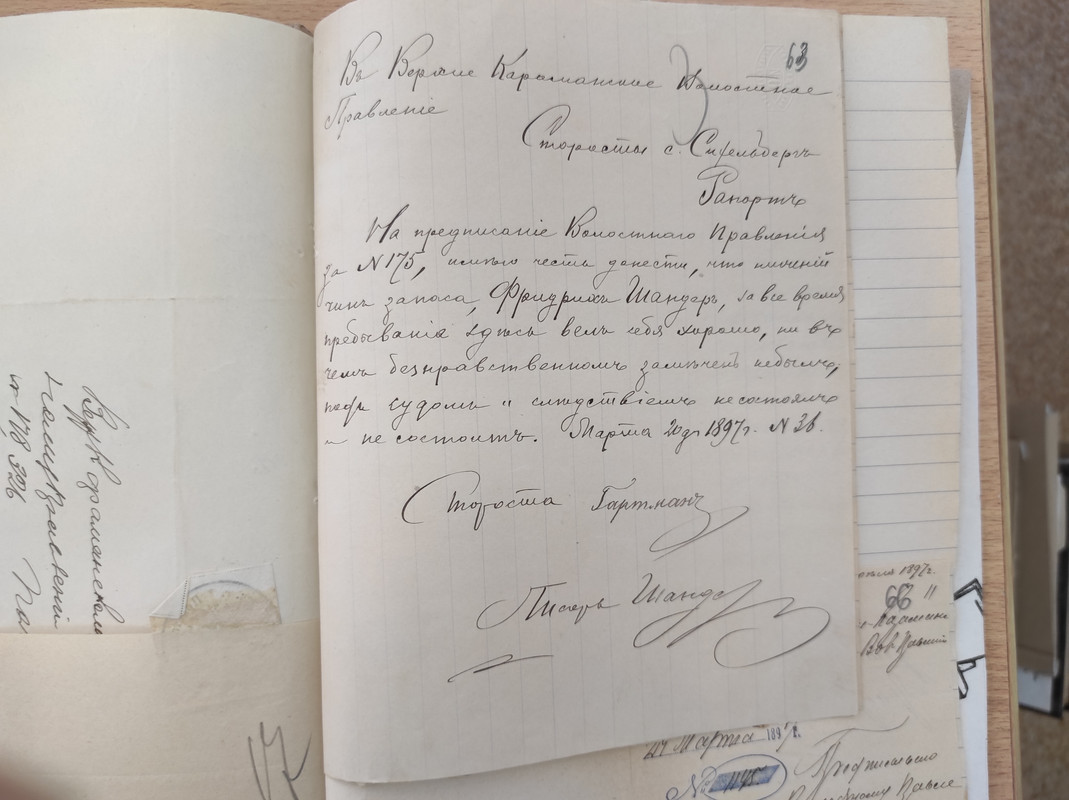 63
Въ Верхне Караманское Волостное
Правленiе
Старосты с.
Рапортъ
На предписанiе Волостного Правленiя
за N 175, имѣю честь донести, что
чинъ запаса, Фридрихъ Шандеръ, за все время
пребыванiя здѣсь велъ себя хорошо, ни въ
чемъ безнравственномъ замѣченъ небылъ,
подъ судомъ и слѣдствiемъ несостоялъ
и не состоитъ. Марта 20 д. 1897 г. N 36.
Староста Гартманъ
Писарь Шандеръ
1897 г.
66
24 Марта 1897 г.
№